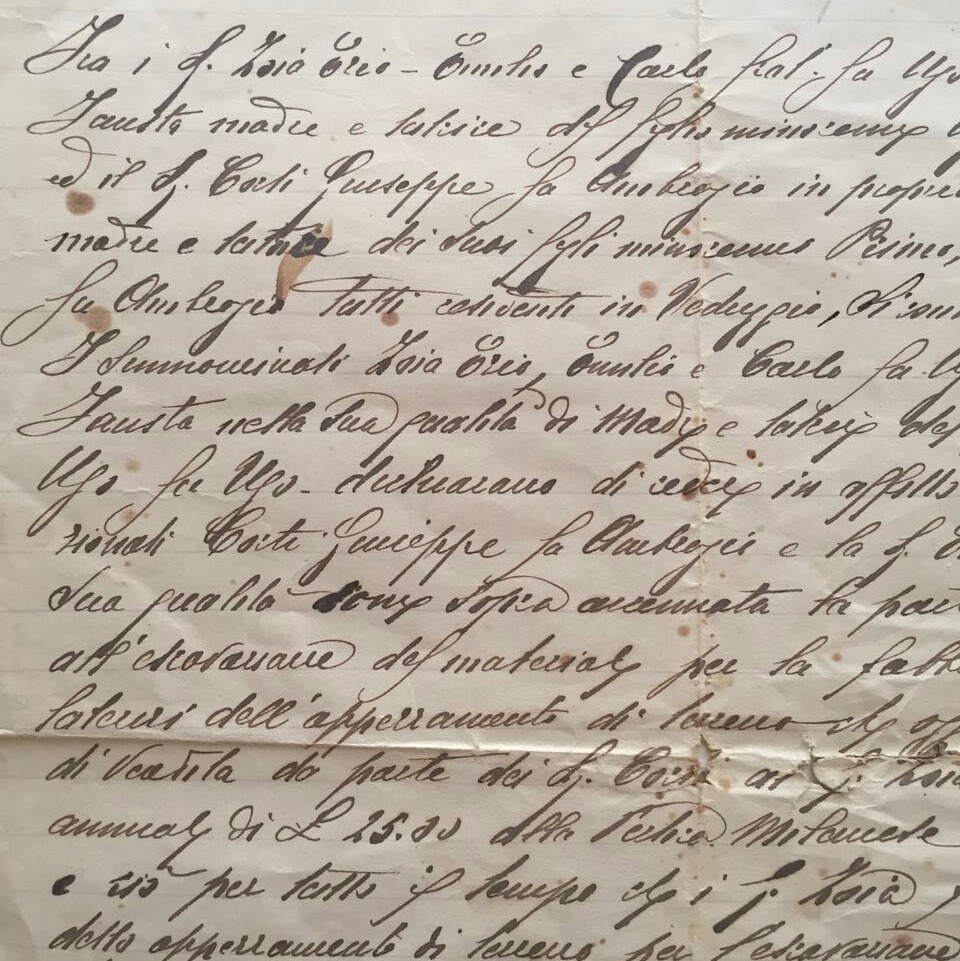 Fra i S. Zoia Erio - Emilio e Carlo frat. fu Ugo
Fausta madre e tutrice del figlio minorenne
ed il S. Corti Giuseppe fu Ambrogio in proprio
madre e tutrice dei suoi figli minorenni Primo,
fu Ambrogio tutti residenti in Veduggio, si con
I summenzionati Zoia Erio, Emilio e Carlo fu Ugo
Fausta nella sua qualità di Madre e tutrice del
Ugo fu Ugo - dichiarano di cedere in affitto
zionati Corti Giuseppe fu Ambrogio e la S.
sua qualità come sopra accennata la parte
all'escavazione del materiale per la fabb
laterizi dell'appezzamento di terreno che
di Vendita da parte dei S. Corti ai S. Zoia
annuale di £ 25.00 alla Pertica Milanese
e ciò per tutto il tempo che i S. Zoia
detto appezzamento di terreno per l'escavazione